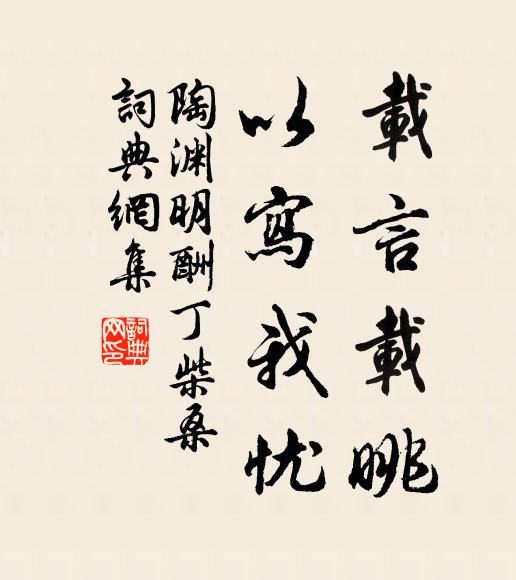 載言載眺
以寫我忧
陶渊明酬丁柴桑
詞典網集
詞典网印